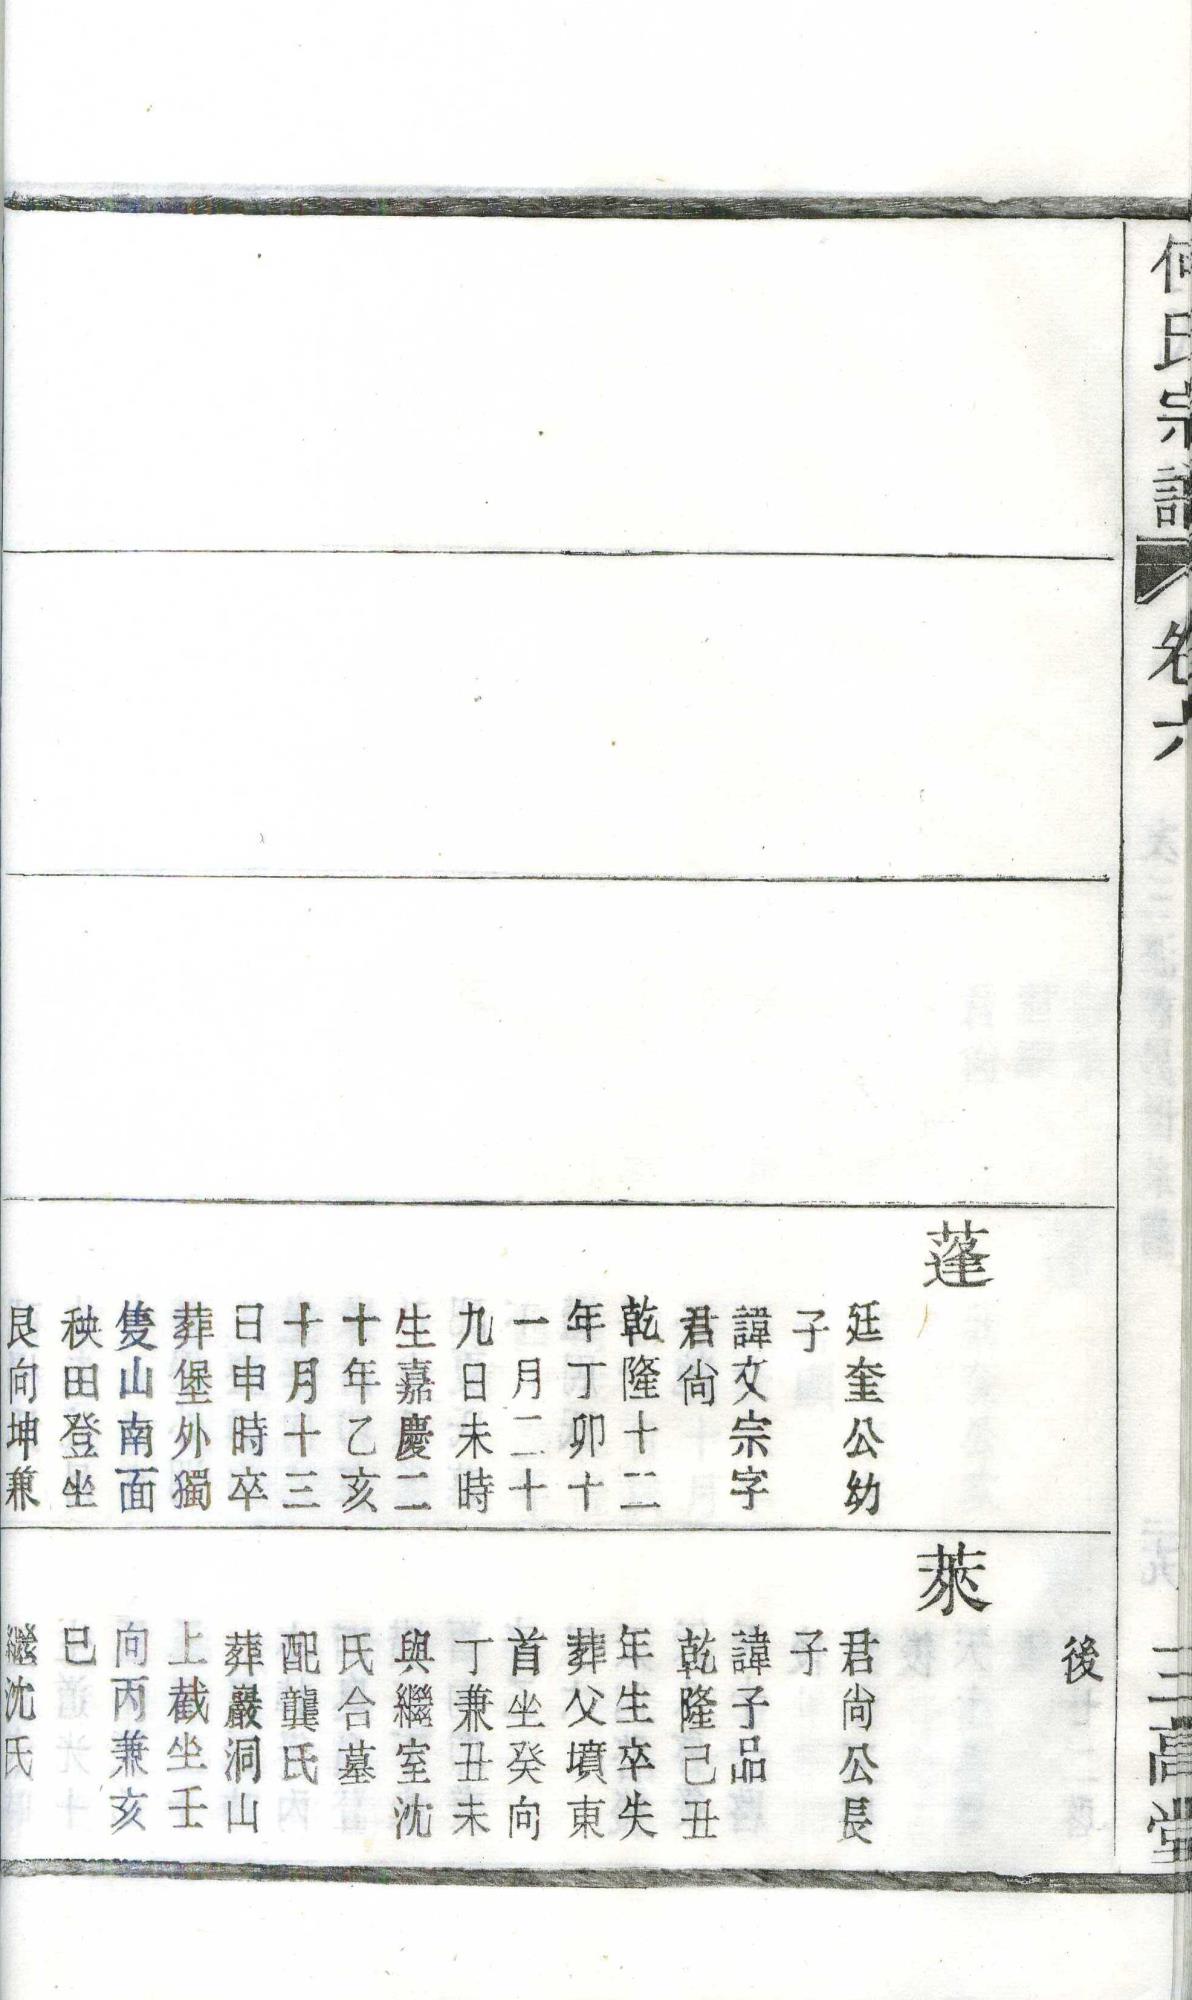 何氏宗譜
卷六
三高堂
蓬
廷奎公幼
子
諱文宗字
君尙
乾隆十二
年丁卯十
一月二十
九日未時
生嘉慶二
十年乙亥
十月十三
日申時卒
葬堡外獨
隻山南面
秧田登坐
艮向坤兼
後
萊
君尙公長
子
諱子品
乾隆己丑
年生卒失
葬父墳東
首坐癸向
丁兼丑未
與繼室沈
氏合墓
配龔氏
葬巖洞山
上截坐壬
向丙兼亥
巳
繼沈氏